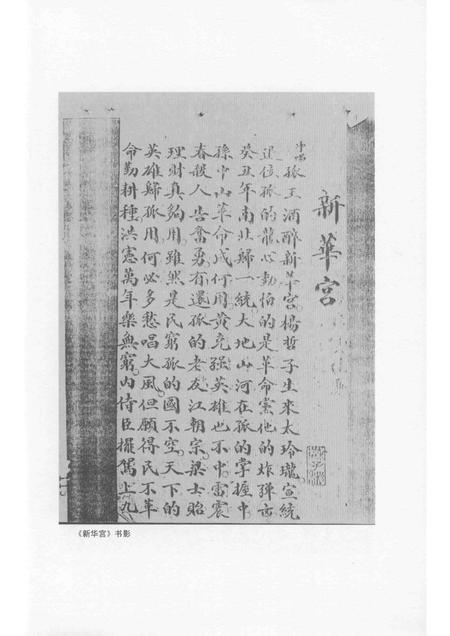 新華宮
孤王酒醉新華宮楊哲子生來太玲瓏宣統
退位孤的龍心動怕的是革命黨他的炸彈
癸丑年南北歸一統大地山河在孤的掌握中
孫中山革命成何用黃克強英雄也不中雷震
春殺人告奮勇有還孤的老友江朝宗梁士詒
理財真夠用雖然是民窮孤的國不空天下的
英雄歸孤用何必多愁唱大風但願得民不革
命勤耕種洪憲萬年樂無窮內侍臣擺駕上九
《新华宫》书影